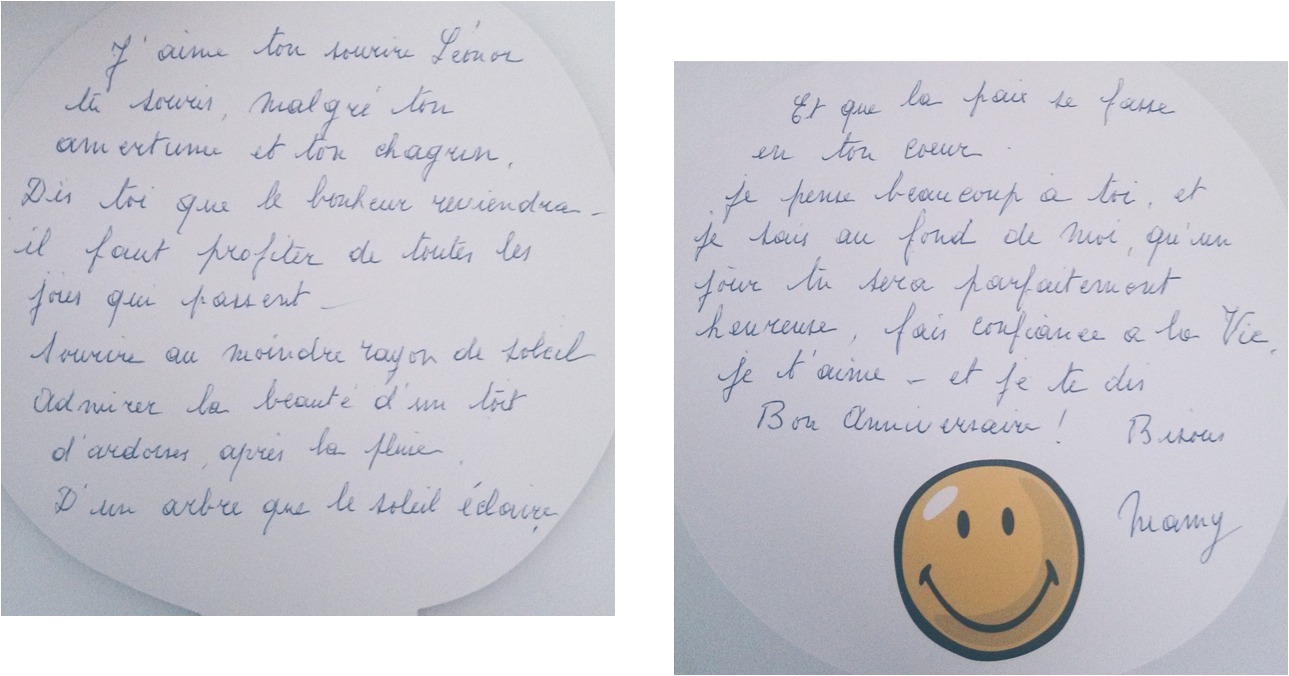 J'aime ton sourire Léonor
tu souris, malgré ton
amertume et ton chagrin.
Dis toi que le bonheur reviendra -
il faut profiter de toutes les
joies qui passent -
Sourire au moindre rayon de soleil
Admirer la beauté d'un toit
d'ardoises, après la pluie.
D'un arbre que le soleil éclaire,
Et que la paix se fasse
en ton coeur.
je pense beaucoup à toi, et
je sais au fond de moi, qu'un
jour tu sera parfaitement
heureuse, fais confiance a la Vie,
je t'aime - et je te dis
Bon Anniversaire ! Bisous
Mamy